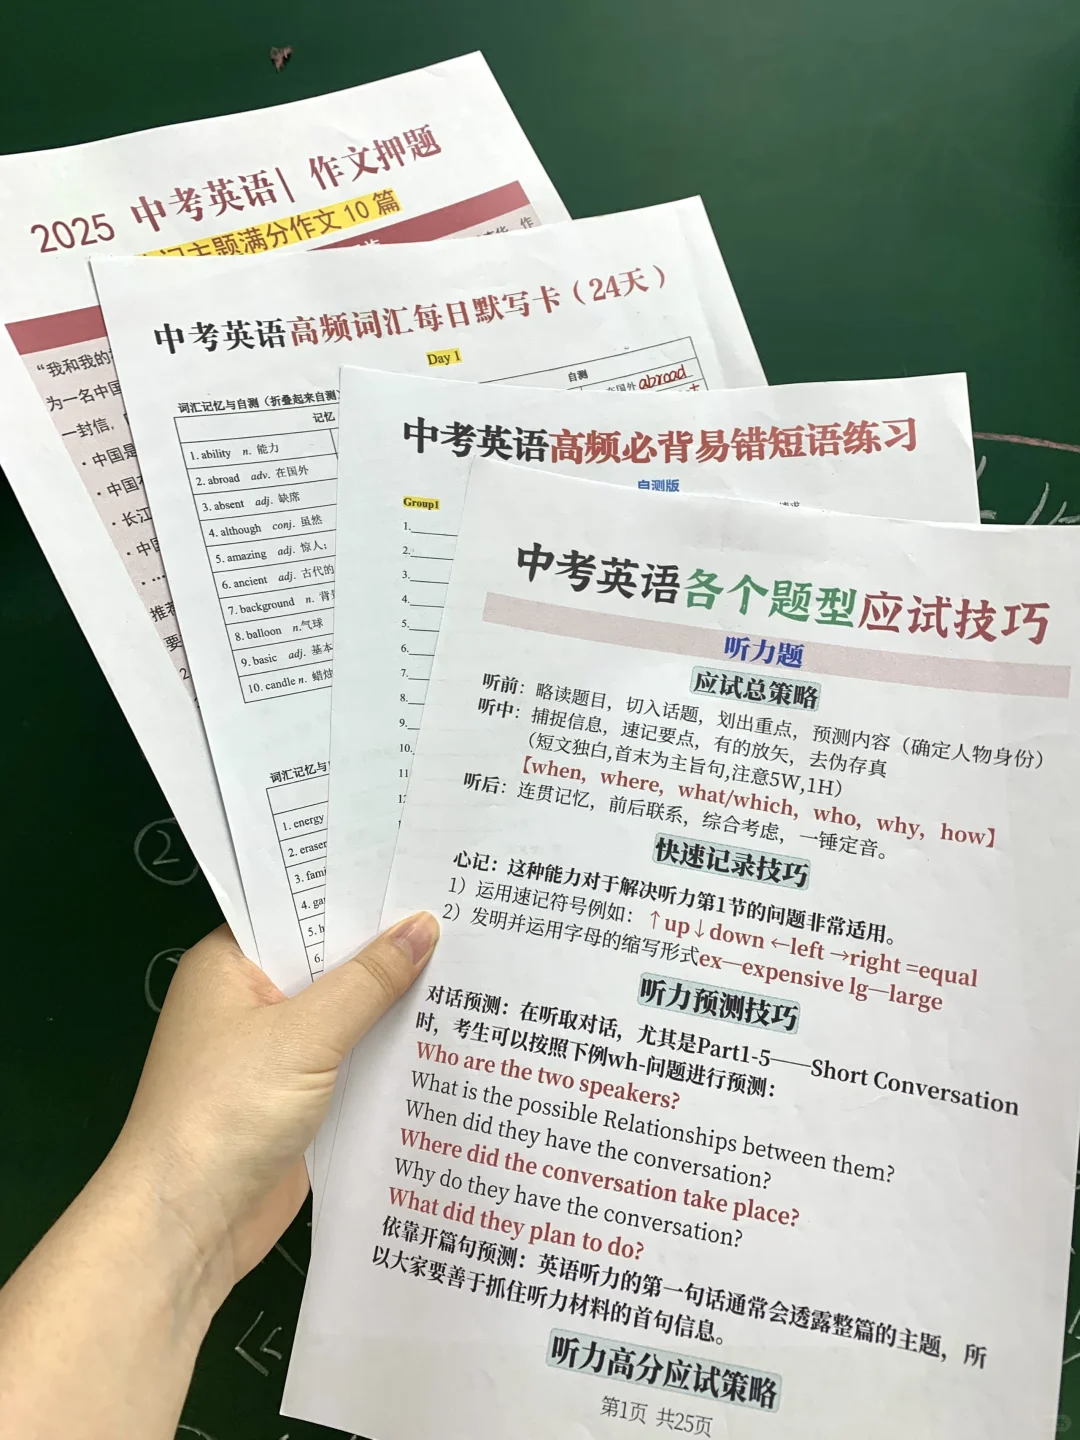 2025 中考英语| 作文押题
主题满分作文 10 篇
作
“我和我的
为一名中国
一封信，
· 中国是
· 中国
· 长江
· 中国
· ...
推荐
要
2
中考英语高频词汇每日默写卡（24天）
Day 1
词汇记忆与自测（折叠起来自测）
记忆
自测
在国外 abroad
1. ability n. 能力
2. abroad adv. 在国外
3. absent adj. 缺席
4. although conj. 虽然
5. amazing adj. 惊人；
6. ancient adj. 古代的
7. background n. 背
8. balloon n.气球
9. basic adj. 基本
10. candle n. 蜡烛
词汇记忆与
1. energy
2. eraser
3. fami
4. ga
5. h
6.
中考英语高频必背易错短语练习
自测版
Group1
1.
2.
3.
4.
5.
6.
7.
8.
9.
10.
11
中考英语各个题型应试技巧
听力题
应试总策略
听前：略读题目，切入话题，划出重点，预测内容（确定人物身份）
听中：捕捉信息，速记要点，有的放矢，去伪存真
（短文独白,首末为主旨句,注意5W,1H）
【when，where，what/which，who，why，how】
听后：连贯记忆，前后联系，综合考虑，一锤定音。
快速记录技巧
心记：这种能力对于解决听力第1节的问题非常适用。
1）运用速记符号例如：↑up↓down ←left →right =equal
2）发明并运用字母的缩写形式ex—expensive lg—large
听力预测技巧
对话预测：在听取对话，尤其是Part1-5——Short Conversation
时，考生可以按照下例wh-问题进行预测：
Who are the two speakers?
What is the possible Relationships between them?
When did they have the conversation?
Where did the conversation take place?
Why do they have the conversation?
What did they plan to do?
依靠开篇句预测：英语听力的第一句话通常会透露整篇的主题，所
以大家要善于抓住听力材料的首句信息。
听力高分应试策略
第1页 共25页
2